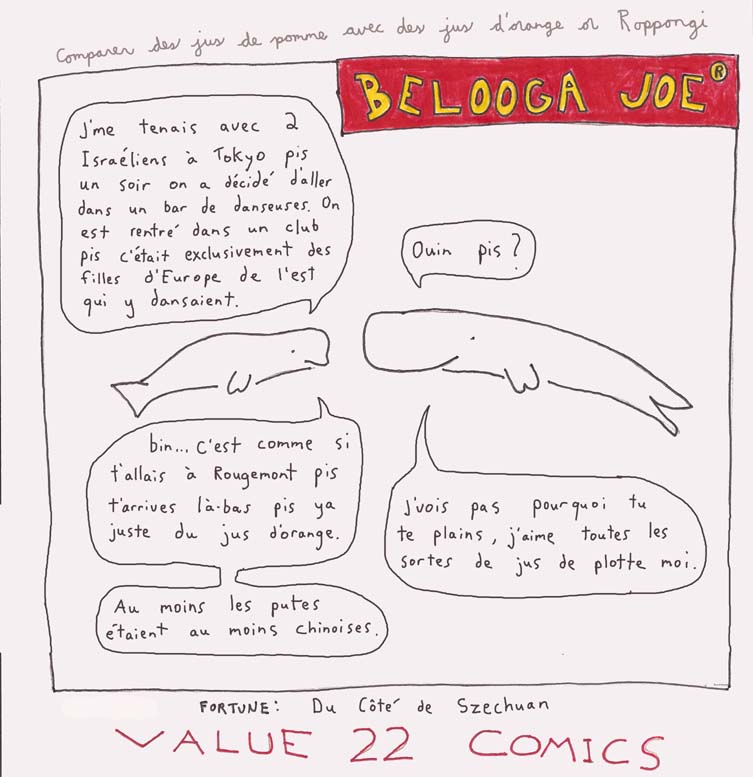 Comparer des jus de pomme avec des jus d'orange or Roppongi
BELOOGA JOE®
J'me tenais avec 2
Israéliens à Tokyo pis
un soir on a décidé d'aller
dans un bar de danseuses. On
est rentré dans un club
pis c'était exclusivement des
filles d'Europe de l'est
qui y dansaient.
Ouin pis?
bin... c'est comme si
t'allais à Rougemont pis
t'arrives là-bas pis ya
juste du jus d'orange.
Au moins les putes
étaient au moins chinoises.
J'vois pas pourquoi tu
te plains, j'aime toutes les
sortes de jus de plotte moi.
FORTUNE: Du Côté de Szechuan
VALUE 22 COMICS